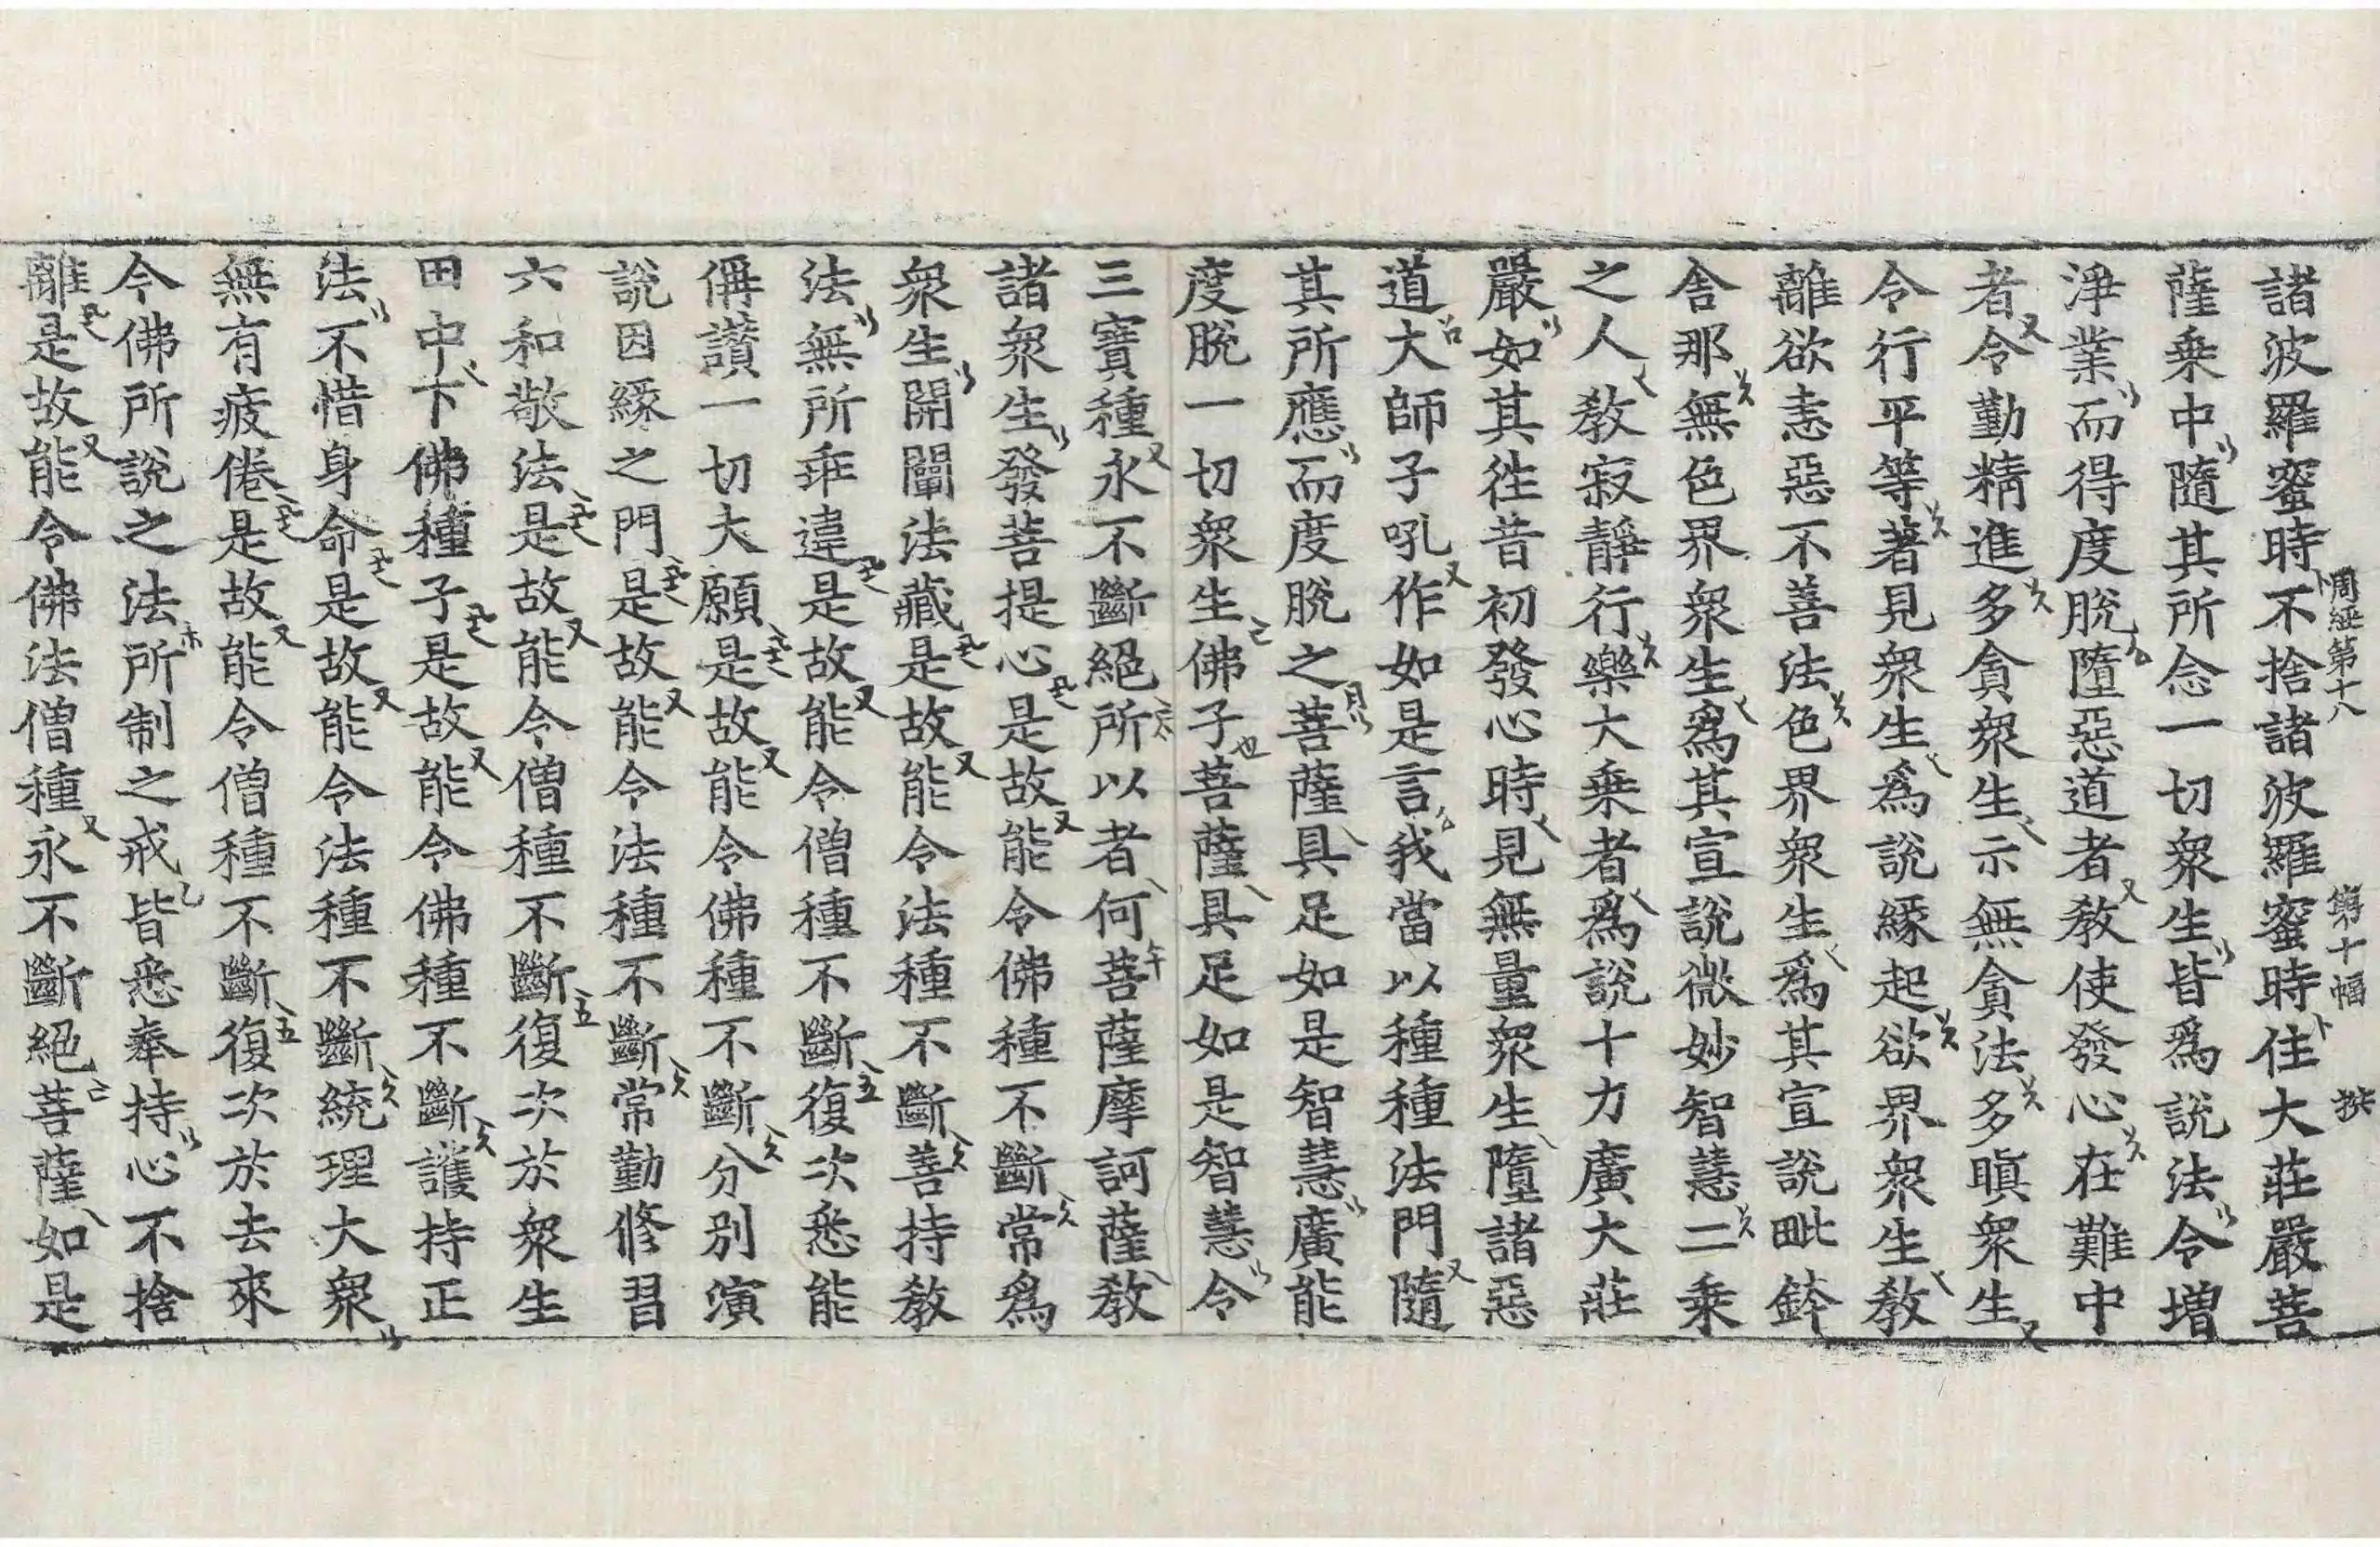 諸波羅蜜時不捨諸波羅蜜時住大莊嚴菩
周經第十八 第十幅
薩乘中隨其所念一切衆生皆爲說法令增
淨業而得度脫墮惡道者教使發心在難中
者令勤精進多貪衆生示無貪法多瞋衆生
令行平等著見衆生爲說緣起欲界衆生教
離欲恚惡不善法色界衆生爲其宣說毗鉢
舍那無色界衆生爲其宣說微妙智慧二乘
之人教寂靜行樂大乘者爲說十力廣大莊
嚴如其往昔初發心時見無量衆生墮諸惡
道大師子吼作如是言我當以種種法門隨
其所應而度脫之菩薩具足如是智慧廣能
度脫一切衆生佛子菩薩具足如是智慧令
三寶種永不斷絕所以者何菩薩摩訶薩教
諸衆生發菩提心是故能令佛種不斷常爲
衆生開闡法藏是故能令法種不斷善持教
法無所乖違是故能令僧種不斷復次悉能
偁讚一切大願是故能令佛種不斷分別演
說因緣之門是故能令法種不斷常勤修習
六和敬法是故能令僧種不斷復次於衆生
田中下佛種子是故能令佛種不斷護持正
法不惜身命是故能令法種不斷統理大衆
無有疲倦是故能令僧種不斷復次於去來
今佛所說之法所制之戒皆悉奉持心不捨
離是故能令佛法僧種永不斷絕菩薩如是